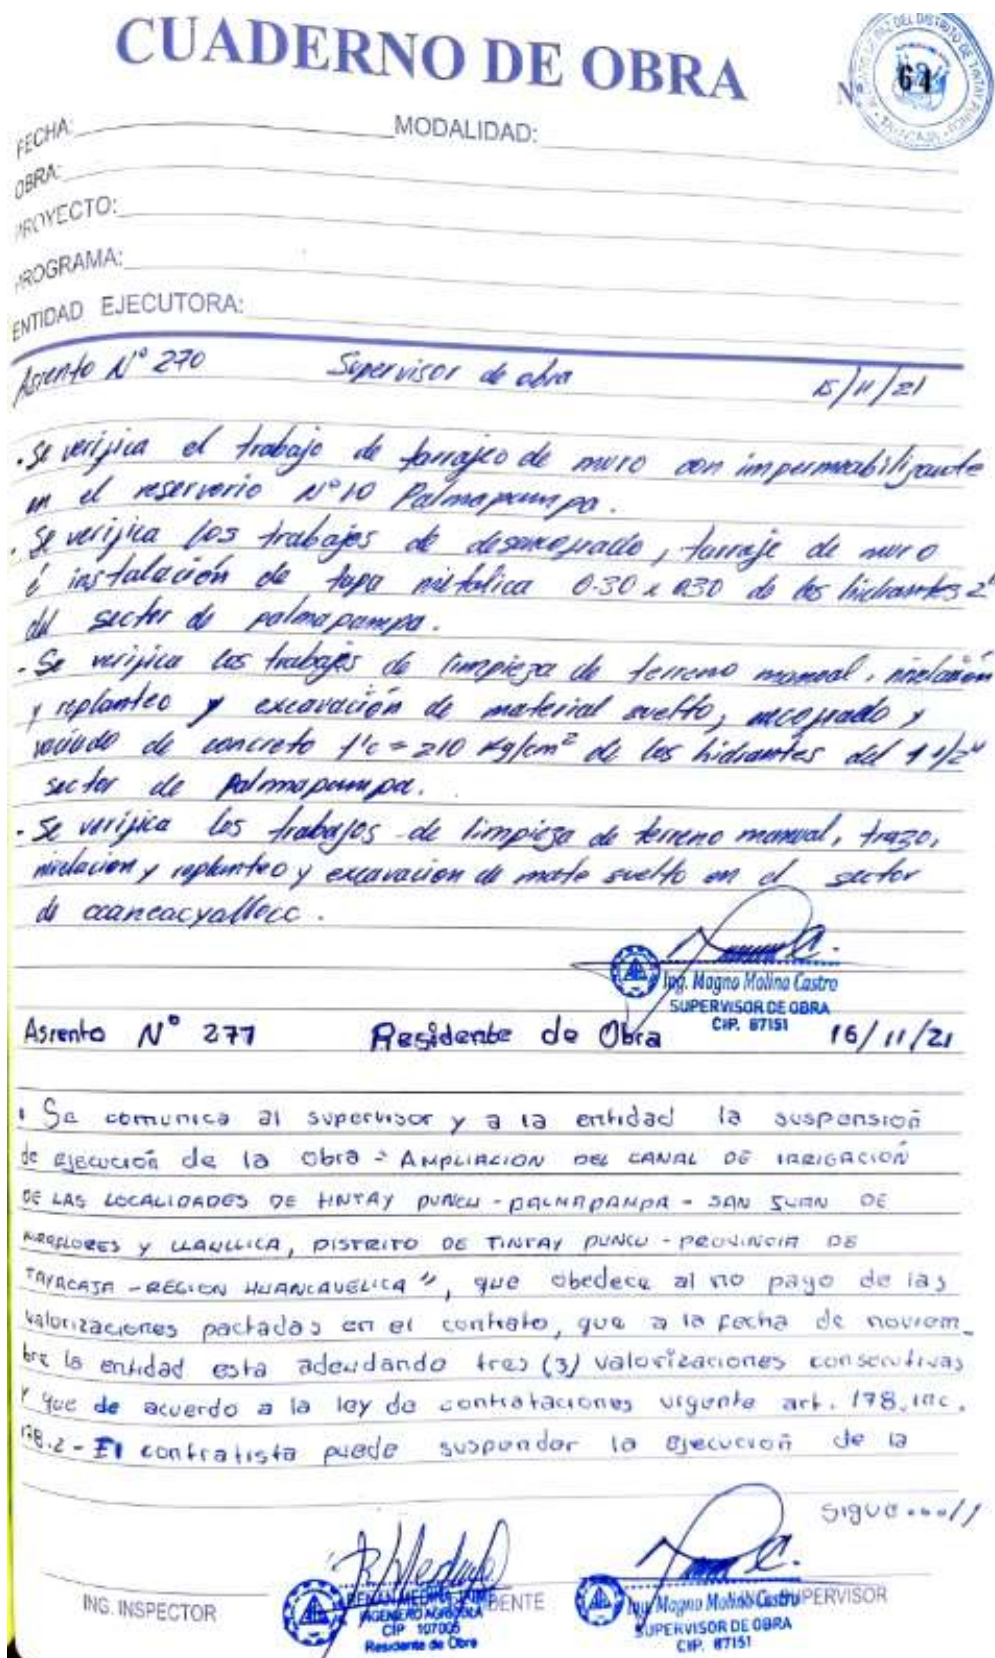 CUADERNO DE OBRA
Nº 64
FECHA: MODALIDAD:
OBRA:
PROYECTO:
PROGRAMA:
ENTIDAD EJECUTORA:
Asiento Nº 270 Supervisor de obra 15/11/21
. Se verifica el trabajo de tarrajeo de muro con impermeabilizante
en el reservorio Nº 10 Palmapampa.
. Se verifica los trabajos de desencofrado, tarraje de muro
é instalación de tapa metalica 0.30 x 0.30 de los hidrantes 2"
del sector de palmapampa.
- Se verifica los trabajos de limpieza de terreno manual, nivelación
y replanteo y excavación de material suelto, encofrado y
vaciado de concreto f'c = 210 Kg/cm² de los hidrantes del 1 1/2"
sector de Palmapampa.
- Se verifica los trabajos de limpieza de terreno manual, trazo,
nivelacion y replanteo y excavacion de mate suelto en el sector
de ccancacyallocc.
Ing. Magno Molina Castro
SUPERVISOR DE OBRA
CIP. 87151
Asiento Nº 271 Residente de Obra 16/11/21
. Se comunica al supervisor y a la entidad la suspensión
de ejecución de la obra " AMPLIACION DEL CANAL DE IRRIGACIÓN
DE LAS LOCALIDADES DE TINTAY PUNCU - PALMAPAMPA - SAN JUAN DE
MIRAFLORES Y LLAULLICA, DISTRITO DE TINTAY PUNCU - PROVINCIA DE
TAYACAJA - REGION HUANCAVELICA", que obedece al no pago de las
valorizaciones pactadas en el contrato, que a la fecha de noviem_
bre la entidad esta adeudando tres (3) valorizaciones consecutivas
y que de acuerdo a la ley de contrataciones urgente art. 178. inc.
178.2 - El contratista puede suspender la ejecución de la
sigue...//
ING. INSPECTOR
INGENIERO AGRICOLA
CIP 107005
Residente de Obra
Ing. Magno Molina Castro SUPERVISOR
SUPERVISOR DE OBRA
CIP. 87151